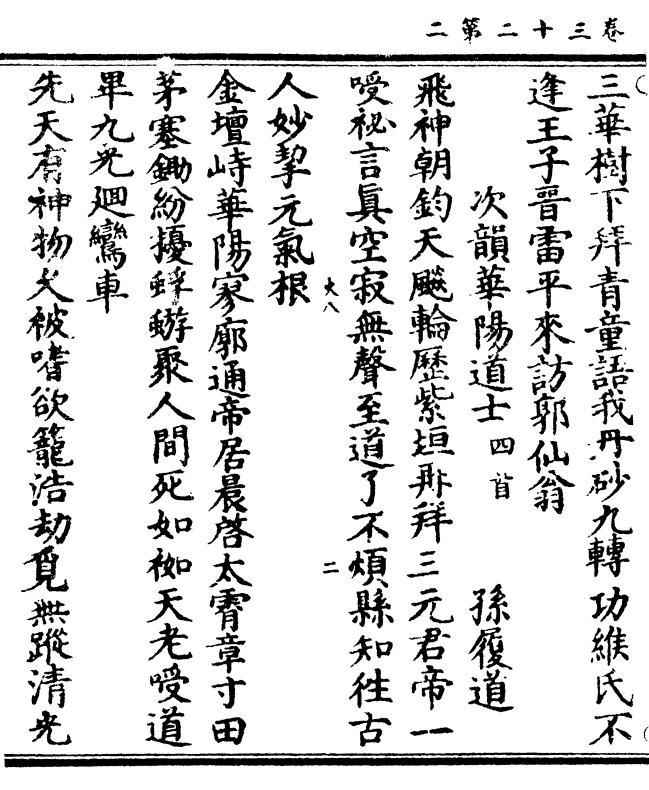 二第二十三卷
三華樹下拜青童語我丹砂九轉功緱氏不
逢王子晉雷平來訪郭仙翁
次韻華陽道士四首 孫履道
飛神朝鈞天飈輪歷紫垣再拜三元君帝一
嘤祕言眞空寂無聲至道了不煩縣知徃古
大八 二
人妙挈元氣根
金壇峙華陽寥廓通帝居晨啓太霄章寸田
茅塞鋤紛擾蜉蝣聚人間死如洳天老嘤道
畢九光廻鸞車
先天有神物久被嗜欲籠浩劫覓無蹤清光